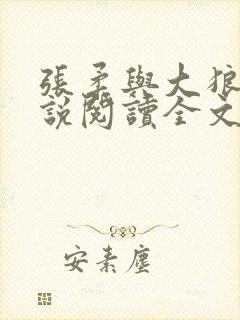 張矛與大狼
說閱讀全文
安素塵